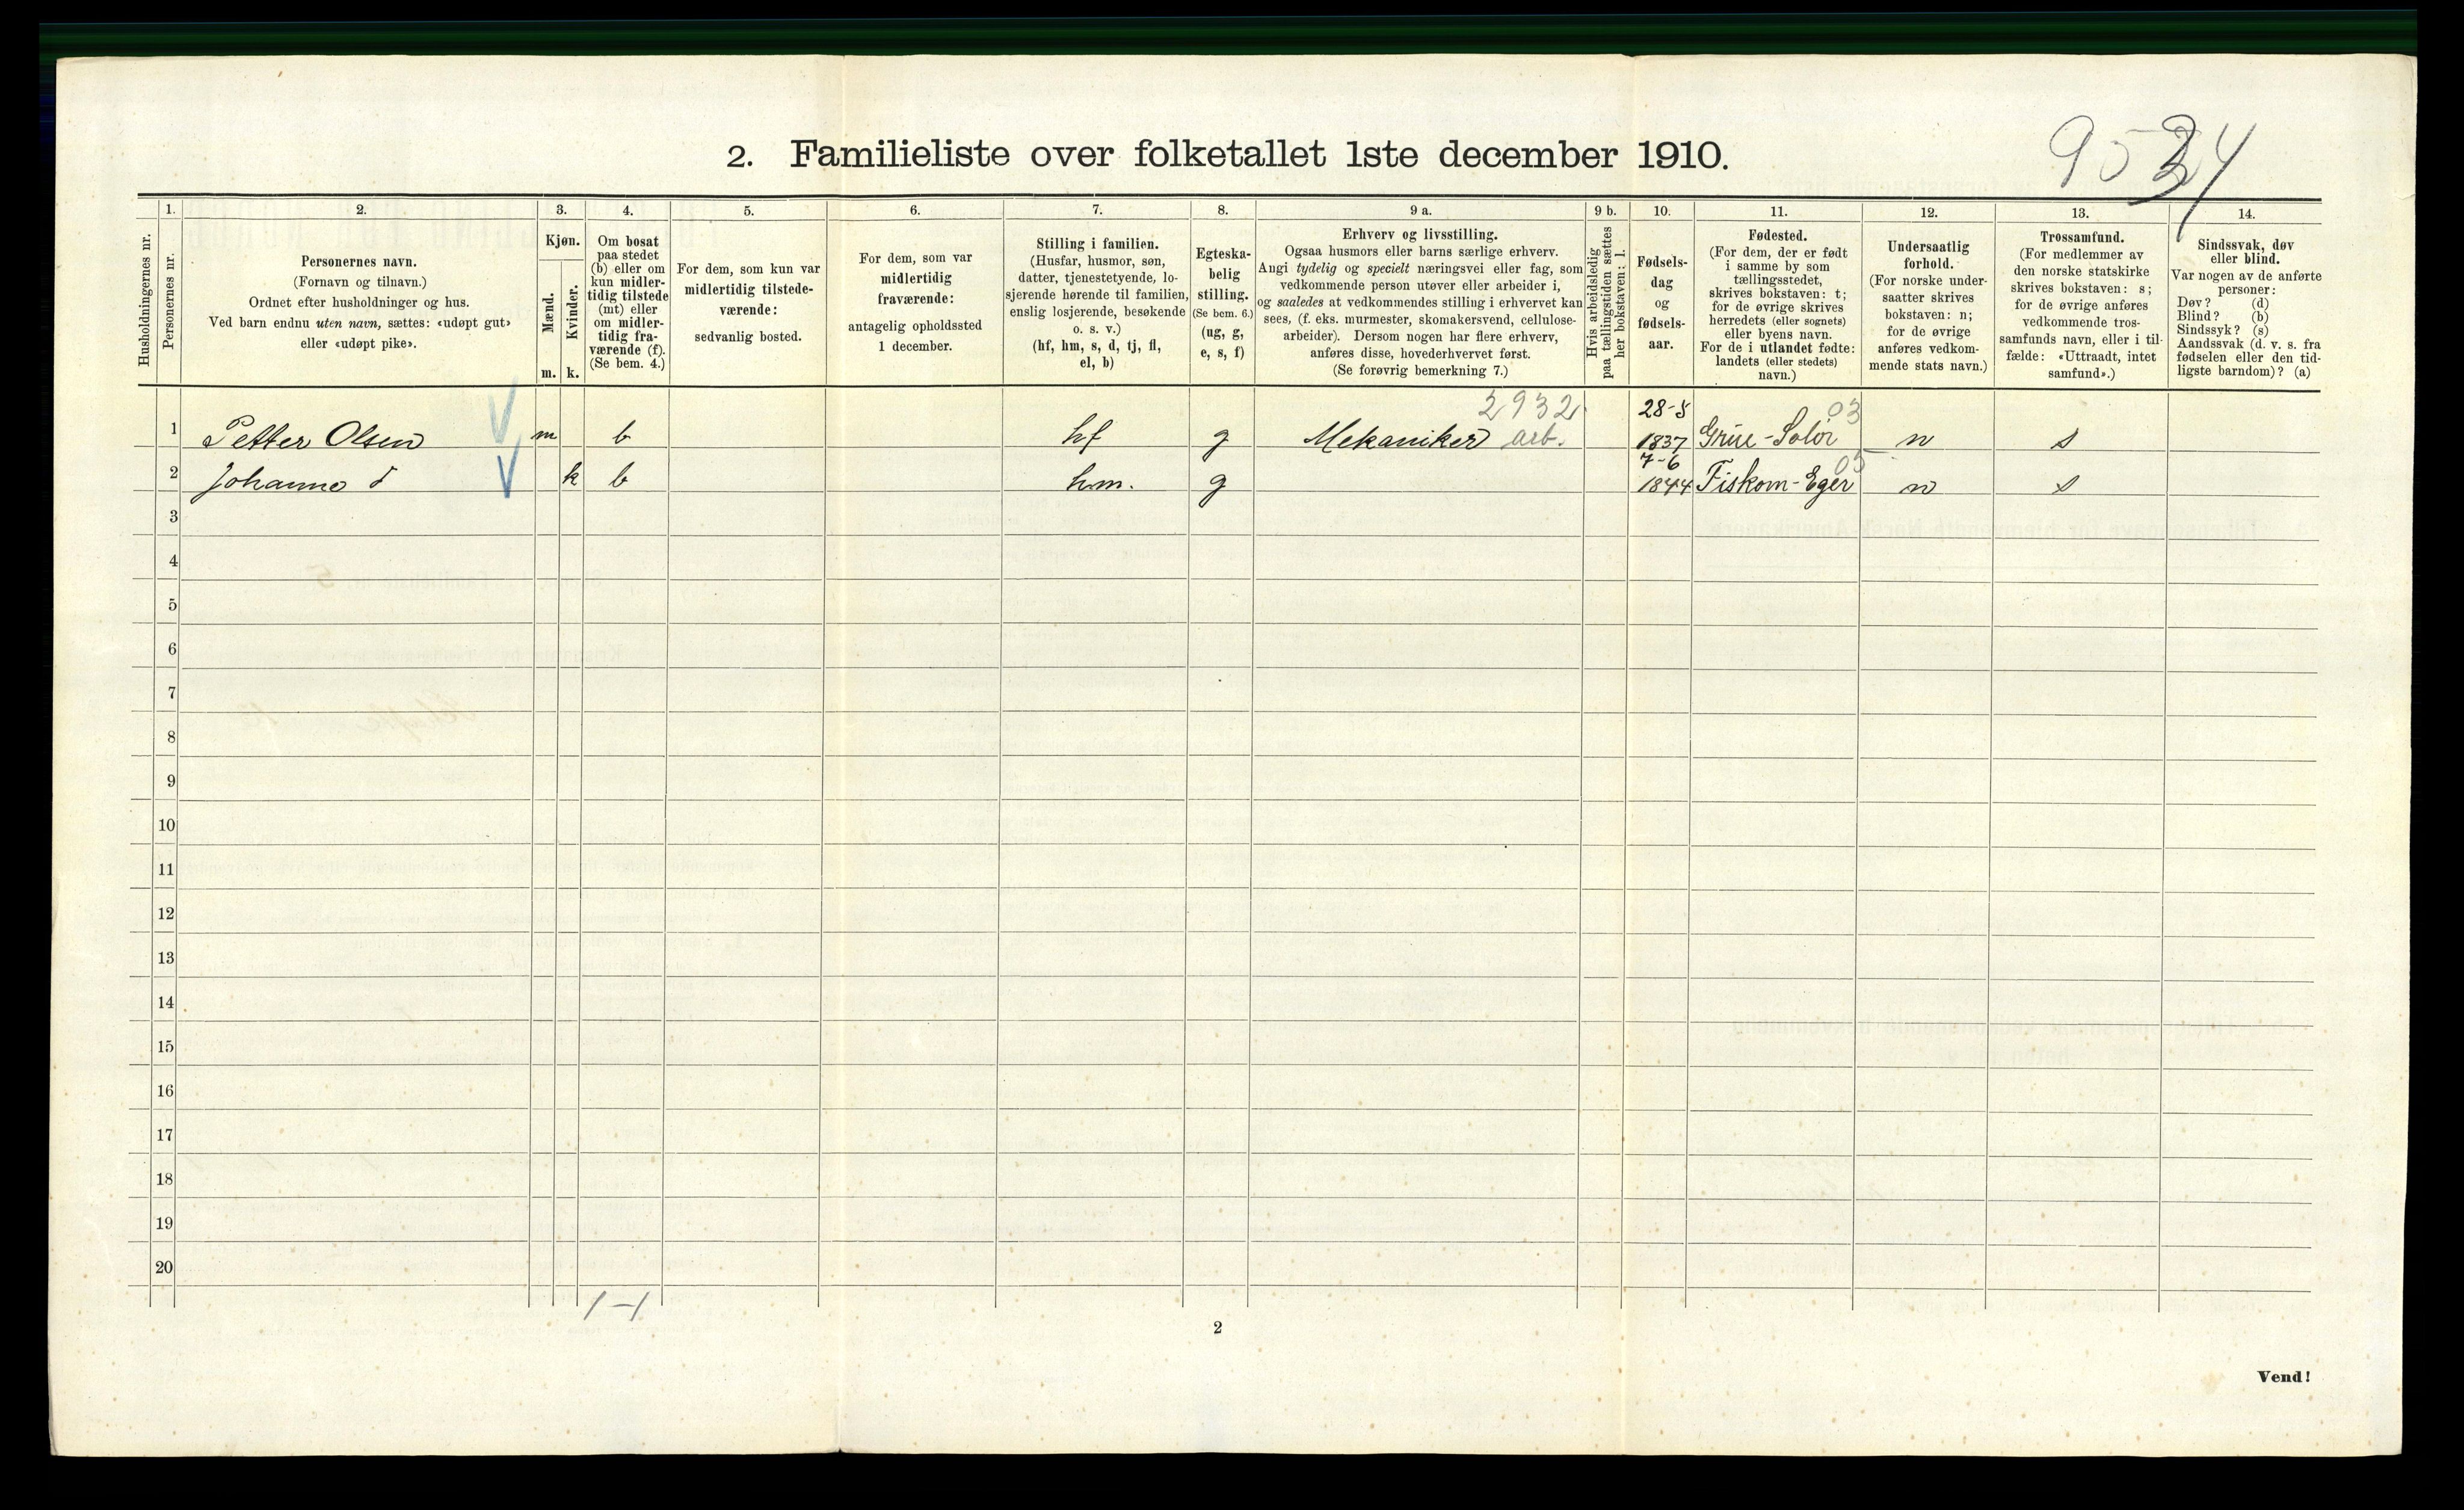 2. Familieliste over folketallet 1ste december 1910.
Husholdningernes nr.
1.
Personernes nr.
2.
Personernes navn.
(Fornavn og tilnavn.)
Ordnet efter husholdninger og hus.
Ved barn endnu uten navn, sættes: «udøpt gut»
eller «udøpt pike».
3.
Kjøn.
Mænd.
Kvinder.
m.
k.
4.
Om bosat
paa stedet
(b) eller om
kun midler-
tidig tilstede
(mt) eller
om midler-
tidig fra-
værende (f).
(Se bem. 4.)
5.
For dem, som kun var
midlertidig tilstede-
værende:
sedvanlig bosted.
6.
For dem, som var
midlertidig
fraværende:
antagelig opholdssted
1 december.
7.
Stilling i familien.
(Husfar, husmor, søn,
datter, tjenestetyende, lo-
sjerende hørende til familien,
enslig losjerende, besøkende
o. s. v.)
(hf, hm, s, d, tj, fl,
el, b)
8.
Egteska-
belig
stilling.
(Se bem. 6.)
(ug, g,
e, s, f)
9 a.
Erhverv og livsstilling.
Ogsaa husmors eller barns særlige erhverv.
Angi tydelig og specielt næringsvei eller fag, som
vedkommende person utøver eller arbeider i,
og saaledes at vedkommendes stilling i erhvervet kan
sees, (f. eks. murmester, skomakersvend, cellulose-
arbeider). Dersom nogen har flere erhverv,
anføres disse, hovederhvervet først.
(Se forøvrig bemerkning 7.)
9 b.
Hvis arbeidsledig
paa tællingstiden sættes
her bokstaven: l.
10.
Fødsels-
dag
og
fødsels-
aar.
11.
Fødested.
(For dem, der er født
i samme by som
tællingsstedet,
skrives bokstaven: t;
for de øvrige skrives
herredets (eller sognets)
eller byens navn.
For de i utlandet fødte:
landets (eller stedets)
navn.)
12.
Undersaatlig
forhold.
(For norske under-
saatter skrives
bokstaven: n;
for de øvrige
anføres vedkom-
mende stats navn.)
13.
Trossamfund.
(For medlemmer av
den norske statskirke
skrives bokstaven: s;
for de øvrige anføres
vedkommende tros-
samfunds navn, eller i til-
fælde: «Uttraadt, intet
samfund».)
14.
Sindssvak, døv
eller blind.
Var nogen av de anførte
personer:
Døv? (d)
Blind? (b)
Sindssyk? (s)
Aandssvak (d. v. s. fra
fødselen eller den tid-
ligste barndom)? (a)
2932 28-5 03
1 Petter Olsen m b hf g Mekaniker arb. 1837 Grue-Solør n s
7-6 05
2 Johanne d k b hm. g 1844 Fiskom-Eger n s
3
4
5
6
7
8
9
10
11
12
13
14
15
16
17
18
19
20
1-1
2
Vend!